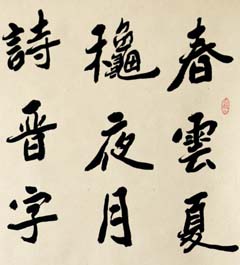 春雲夏
龝夜月
詩晋字